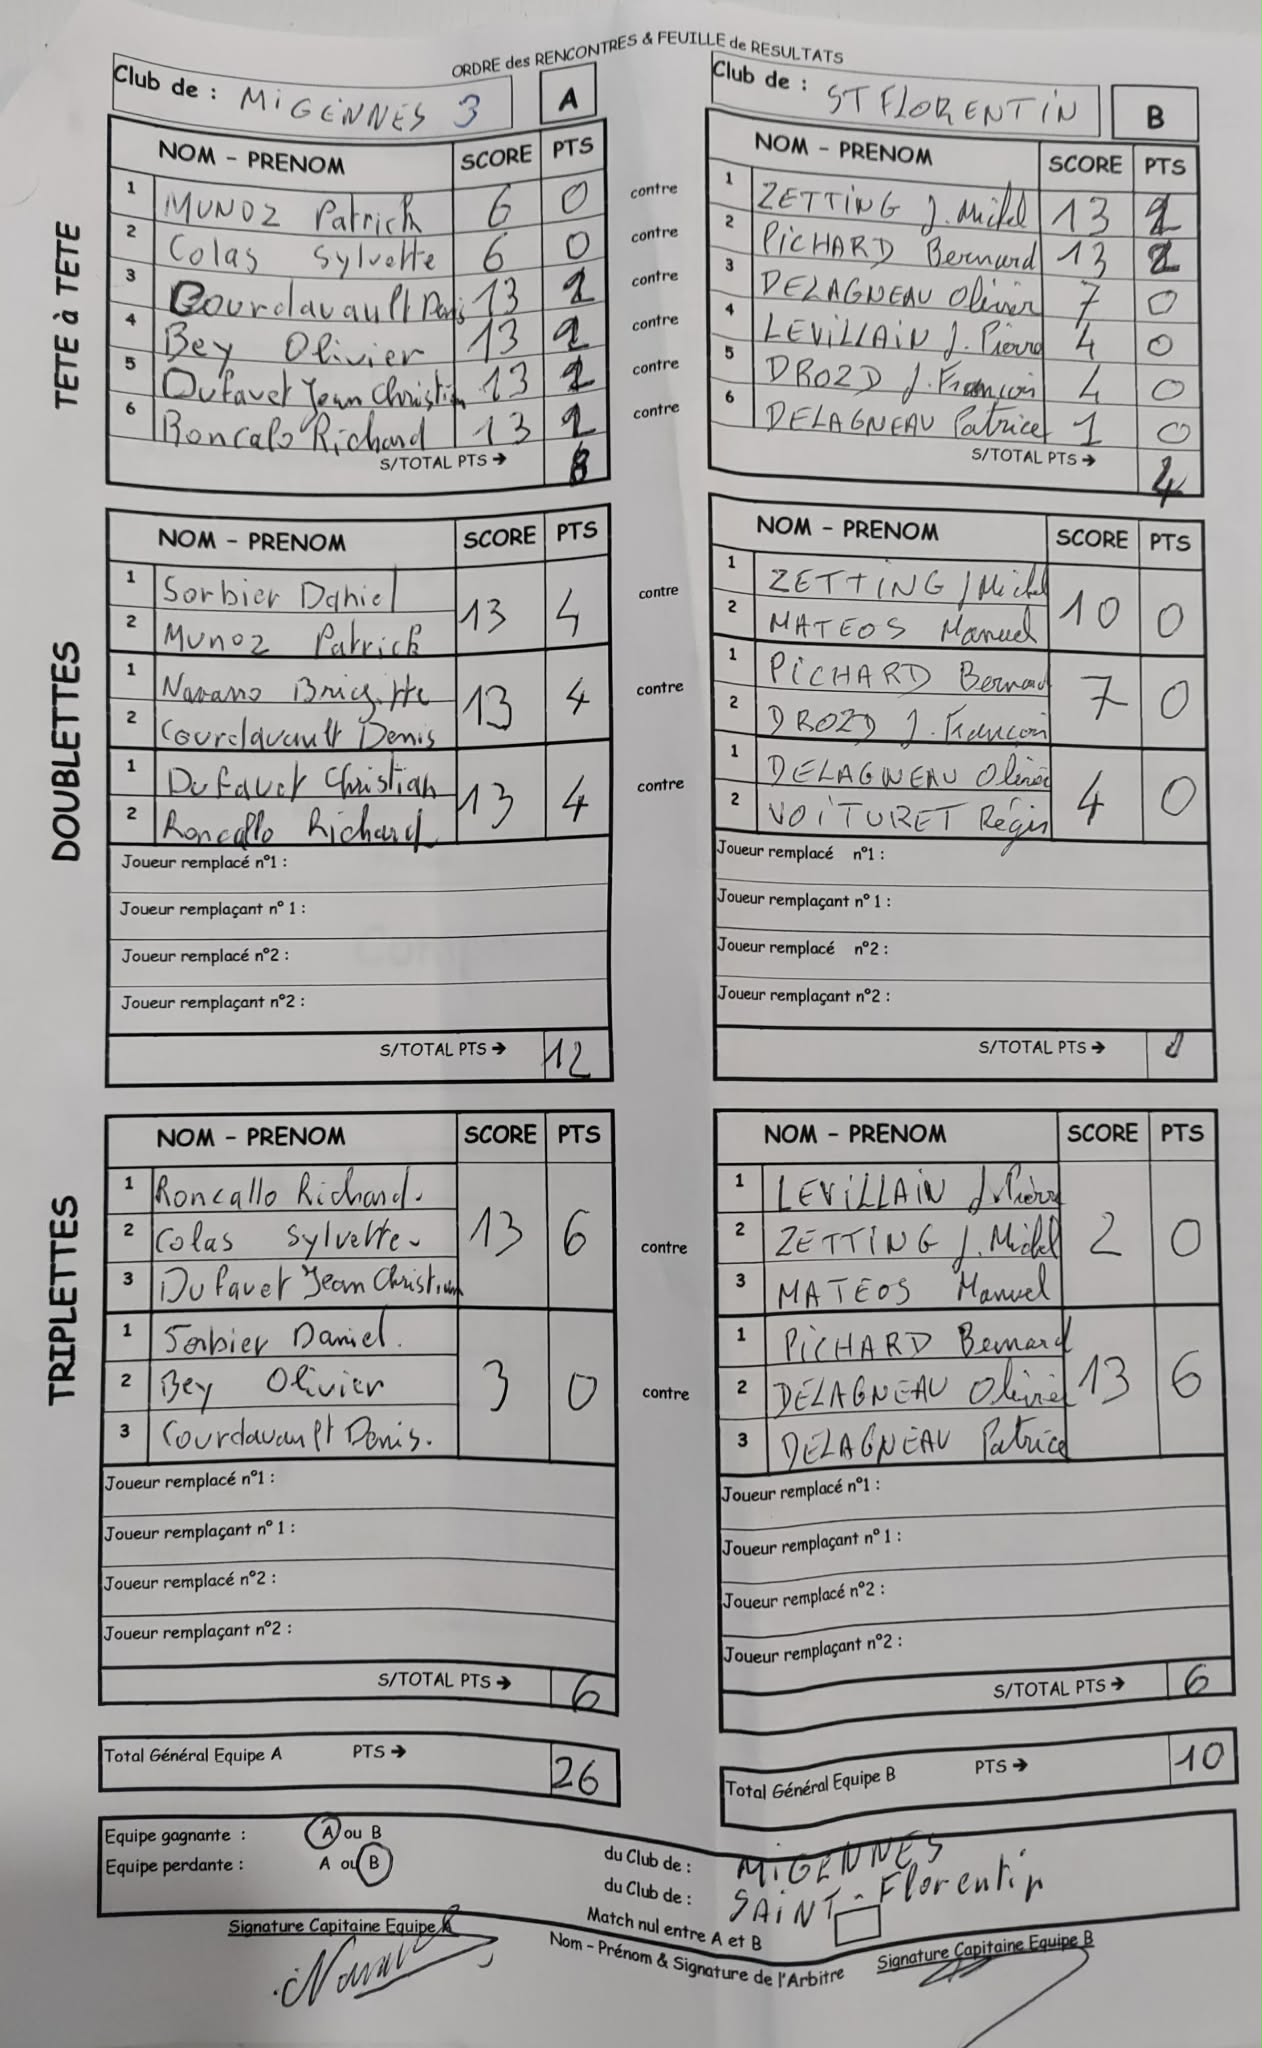 ORDRE des RENCONTRES & FEUILLE de RESULTATS
Club de : MiGENNES 3 A
Club de : ST FLORENTIN B
TETE à TETE
NOM - PRENOM SCORE PTS
1 MUNOZ Patrick 6 0
2 Colas Sylvette 6 0
3 Courdavault Denis 13 2
4 Bey Olivier 13 2
5 Dufavet Jean Christian 13 2
6 Roncalo Richard 13 2
S/TOTAL PTS → 8
contre
contre
contre
contre
contre
contre
NOM - PRENOM SCORE PTS
1 ZETTiNG J.Michel 13 2
2 PiCHARD Bernard 13 2
3 DELAGNEAU Olivier 7 0
4 LEViLLAiN J. Pierre 4 0
5 DROZD J.François 4 0
6 DELAGNEAU Patrice 1 0
S/TOTAL PTS → 4
DOUBLETTES
NOM - PRENOM SCORE PTS
1 Sorbier Daniel 13 4
2 Munoz Patrick
1 Navarro Brigitte 13 4
2 Courdavault Denis
1 Dufavet Christian 13 4
2 Roncallo Richard
Joueur remplacé n°1 :
Joueur remplaçant n° 1 :
Joueur remplacé n°2 :
Joueur remplaçant n°2 :
S/TOTAL PTS → 12
contre
contre
contre
NOM - PRENOM SCORE PTS
1 ZETTiNG J Michel 10 0
2 MATEOS Manuel
1 PiCHARD Bernard 7 0
2 DROZD J. François
1 DELAGNEAU Olivier 4 0
2 VOiTURET Régis
Joueur remplacé n°1 :
Joueur remplaçant n° 1 :
Joueur remplacé n°2 :
Joueur remplaçant n°2 :
S/TOTAL PTS →
TRIPLETTES
NOM - PRENOM SCORE PTS
1 Roncallo Richard. 13 6
2 Colas Sylvette
3 Dufavet Jean Christian
1 Sorbier Daniel. 3 0
2 Bey Olivier
3 Courdavault Denis.
Joueur remplacé n°1 :
Joueur remplaçant n° 1 :
Joueur remplacé n°2 :
Joueur remplaçant n°2 :
S/TOTAL PTS → 6
contre
contre
NOM - PRENOM SCORE PTS
1 LEViLLAiN J.Pierre 2 0
2 ZETTiNG J. Michel
3 MATEOS Manuel
1 PiCHARD Bernard 13 6
2 DELAGNEAU Olivier
3 DELAGNEAU Patrice
Joueur remplacé n°1 :
Joueur remplaçant n° 1 :
Joueur remplacé n°2 :
Joueur remplaçant n°2 :
S/TOTAL PTS → 6
Total Général Equipe A PTS → 26
Total Général Equipe B PTS → 10
Equipe gagnante : A ou B du Club de : MiGENNES
Equipe perdante : A ou B du Club de : SAiNT-Florentin
Match nul entre A et B
Signature Capitaine Equipe A
Nom - Prénom & Signature de l'Arbitre
Signature Capitaine Equipe B